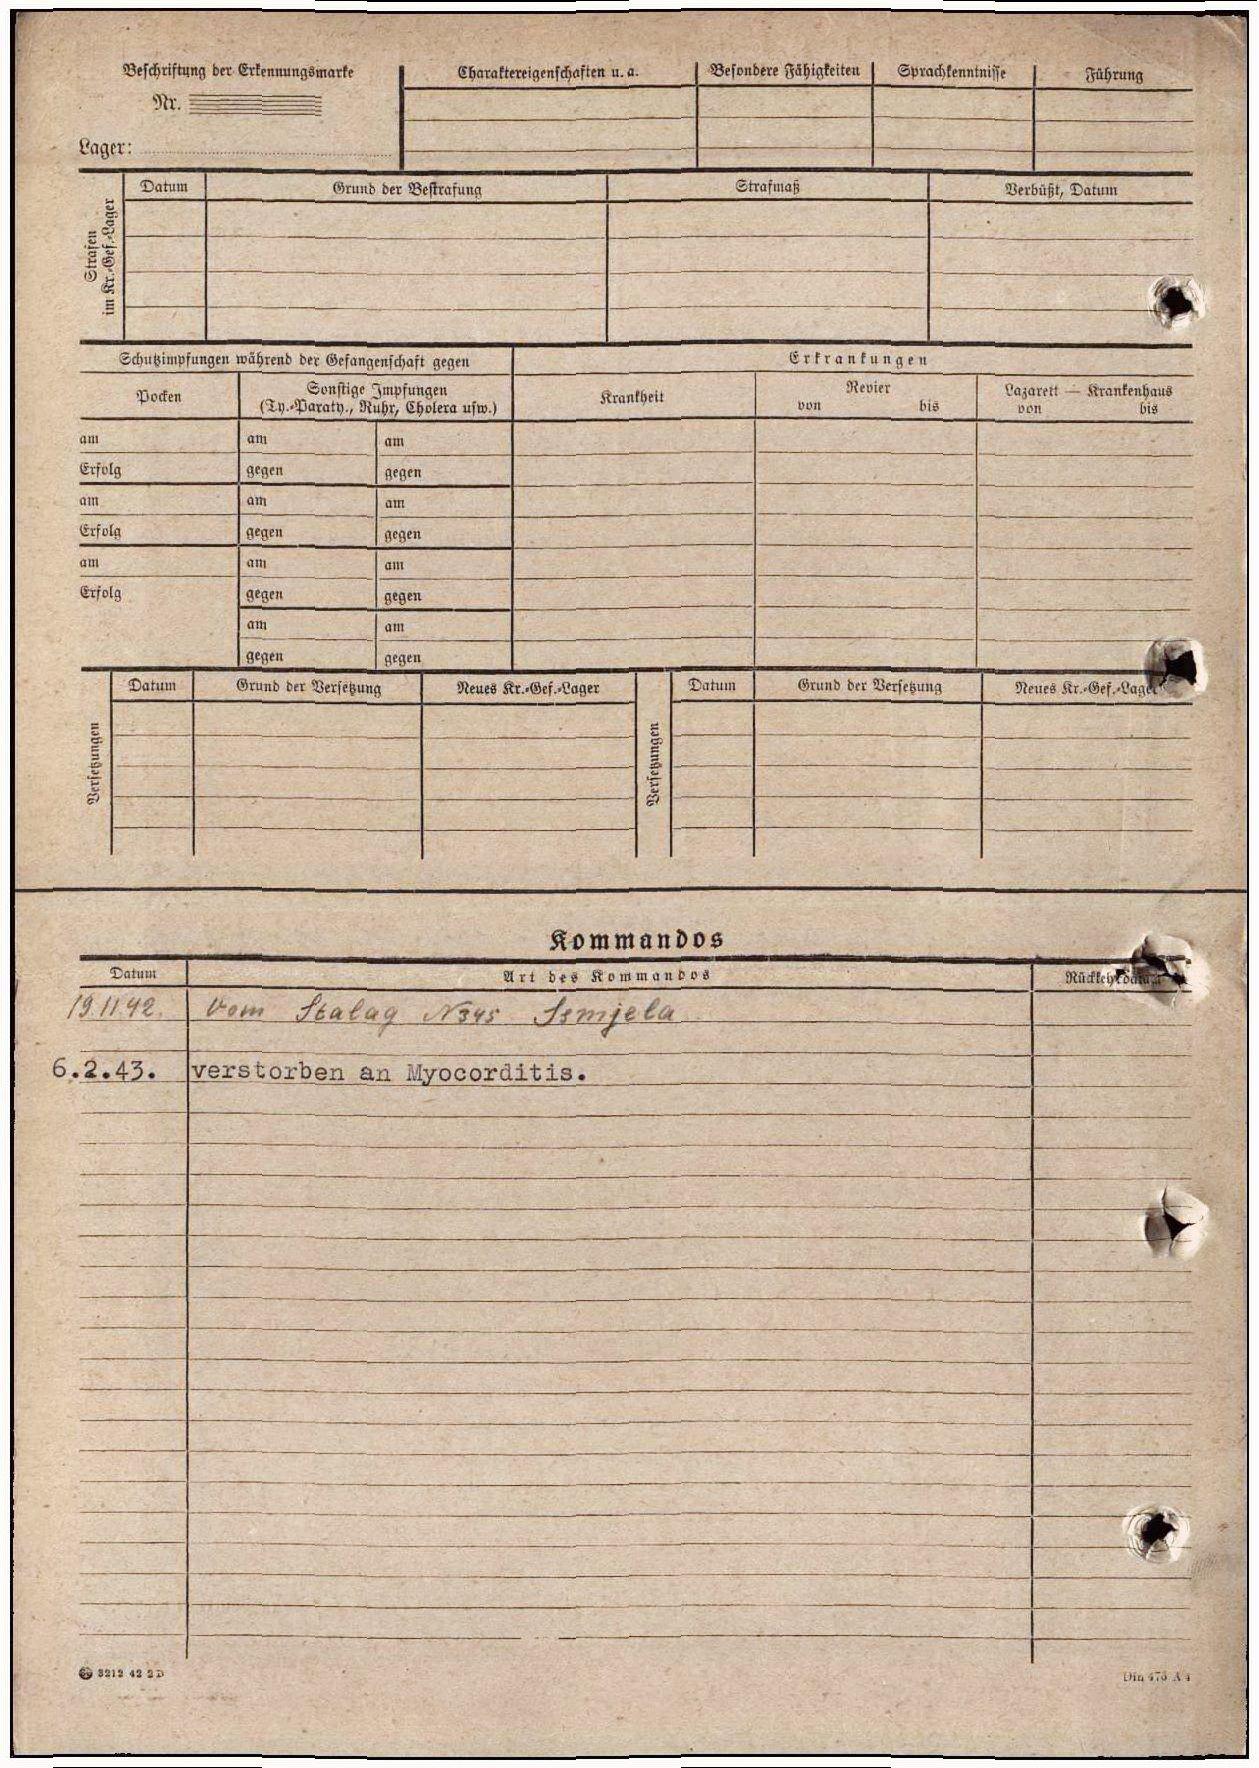 Beschriftung der Erkennungsmarke
Nr.
Lager:
Charaktereigenschaften u. a.
Besondere Fähigkeiten
Sprachkenntnisse
Führung
Strafen
im Kr.-Gef.-Lager
Datum
Grund der Bestrafung
Strafmaß
Verbüßt, Datum
Schutzimpfungen während der Gefangenschaft gegen
Erkrankungen
Pocken
Sonstige Impfungen
(Ty.-Paraty., Ruhr, Cholera usw.)
Krankheit
Revier
von bis
Lazarett — Krankenhaus
von bis
am am am
Erfolg gegen gegen
am am am
Erfolg gegen gegen
am am am
Erfolg gegen gegen
am am
gegen gegen
Versetzungen
Datum Grund der Versetzung Neues Kr.-Gef.-Lager
Versetzungen
Datum Grund der Versetzung Neues Kr.-Gef.-Lager
Kommandos
Datum Art des Kommandos Rückkehrdatum
19.11.42. vom Stalag N345 Ssmjela
6.2.43. verstorben an Myocorditis.
3212 42 2 D
Din 476 A 4